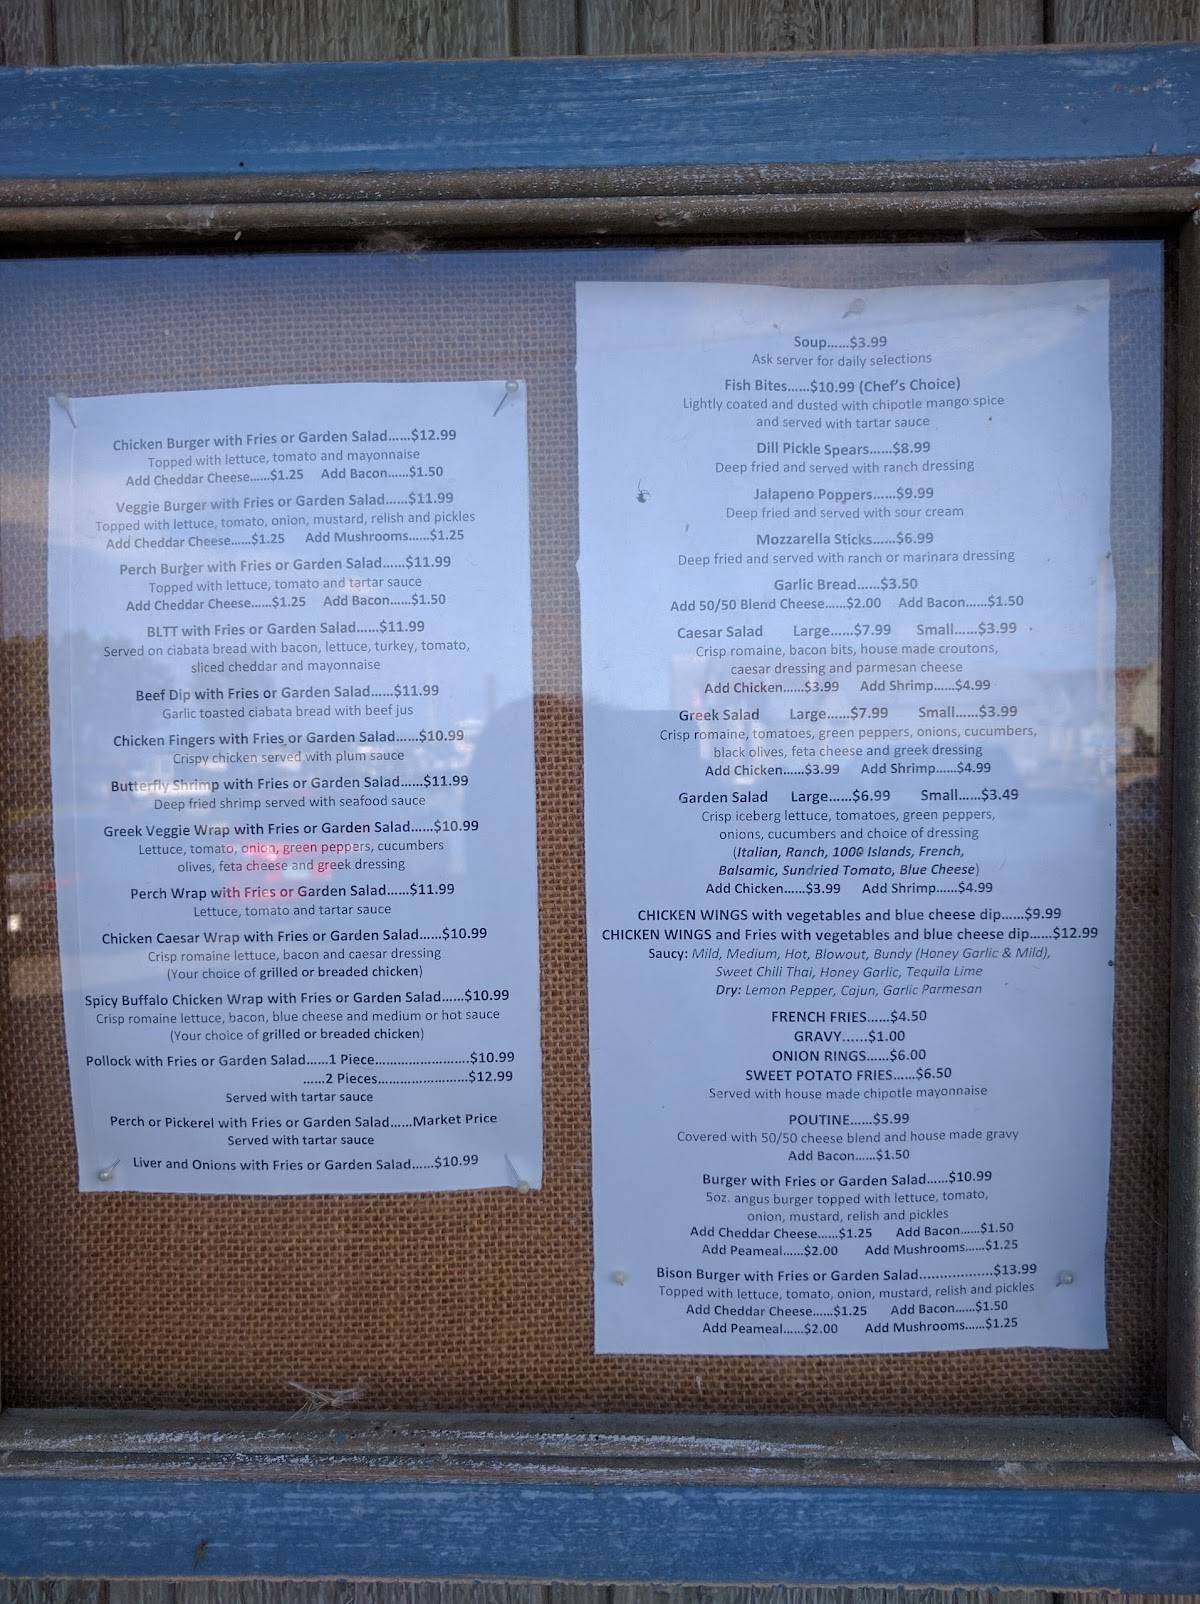 Chicken Burger with Fries or Garden Salad......$12.99
Topped with lettuce, tomato and mayonnaise
Add Cheddar Cheese......$1.25 Add Bacon......$1.50
Veggie Burger with Fries or Garden Salad......$11.99
Topped with lettuce, tomato, onion, mustard, relish and pickles
Add Cheddar Cheese......$1.25 Add Mushrooms......$1.25
Perch Burger with Fries or Garden Salad......$11.99
Topped with lettuce, tomato and tartar sauce
Add Cheddar Cheese......$1.25 Add Bacon......$1.50
BLTT with Fries or Garden Salad......$11.99
Served on ciabata bread with bacon, lettuce, turkey, tomato,
sliced cheddar and mayonnaise
Beef Dip with Fries or Garden Salad......$11.99
Garlic toasted ciabata bread with beef jus
Chicken Fingers with Fries or Garden Salad......$10.99
Crispy chicken served with plum sauce
Butterfly Shrimp with Fries or Garden Salad......$11.99
Deep fried shrimp served with seafood sauce
Greek Veggie Wrap with Fries or Garden Salad......$10.99
Lettuce, tomato, onion, green peppers, cucumbers
olives, feta cheese and greek dressing
Perch Wrap with Fries or Garden Salad......$11.99
Lettuce, tomato and tartar sauce
Chicken Caesar Wrap with Fries or Garden Salad......$10.99
Crisp romaine lettuce, bacon and caesar dressing
(Your choice of grilled or breaded chicken)
Spicy Buffalo Chicken Wrap with Fries or Garden Salad......$10.99
Crisp romaine lettuce, bacon, blue cheese and medium or hot sauce
(Your choice of grilled or breaded chicken)
Pollock with Fries or Garden Salad......1 Piece........................$10.99
......2 Pieces.......................$12.99
Served with tartar sauce
Perch or Pickerel with Fries or Garden Salad......Market Price
Served with tartar sauce
Liver and Onions with Fries or Garden Salad......$10.99
Soup......$3.99
Ask server for daily selections
Fish Bites......$10.99 (Chef's Choice)
Lightly coated and dusted with chipotle mango spice
and served with tartar sauce
Dill Pickle Spears......$8.99
Deep fried and served with ranch dressing
Jalapeno Poppers......$9.99
Deep fried and served with sour cream
Mozzarella Sticks......$6.99
Deep fried and served with ranch or marinara dressing
Garlic Bread......$3.50
Add 50/50 Blend Cheese......$2.00 Add Bacon......$1.50
Caesar Salad Large......$7.99 Small......$3.99
Crisp romaine, bacon bits, house made croutons,
caesar dressing and parmesan cheese
Add Chicken......$3.99 Add Shrimp......$4.99
Greek Salad Large......$7.99 Small......$3.99
Crisp romaine, tomatoes, green peppers, onions, cucumbers,
black olives, feta cheese and greek dressing
Add Chicken......$3.99 Add Shrimp......$4.99
Garden Salad Large......$6.99 Small......$3.49
Crisp iceberg lettuce, tomatoes, green peppers,
onions, cucumbers and choice of dressing
(Italian, Ranch, 1000 Islands, French,
Balsamic, Sundried Tomato, Blue Cheese)
Add Chicken......$3.99 Add Shrimp......$4.99
CHICKEN WINGS with vegetables and blue cheese dip......$9.99
CHICKEN WINGS and Fries with vegetables and blue cheese dip......$12.99
Saucy: Mild, Medium, Hot, Blowout, Bundy (Honey Garlic & Mild),
Sweet Chili Thai, Honey Garlic, Tequila Lime
Dry: Lemon Pepper, Cajun, Garlic Parmesan
FRENCH FRIES......$4.50
GRAVY......$1.00
ONION RINGS......$6.00
SWEET POTATO FRIES......$6.50
Served with house made chipotle mayonnaise
POUTINE......$5.99
Covered with 50/50 cheese blend and house made gravy
Add Bacon......$1.50
Burger with Fries or Garden Salad......$10.99
5oz. angus burger topped with lettuce, tomato,
onion, mustard, relish and pickles
Add Cheddar Cheese......$1.25 Add Bacon......$1.50
Add Peameal......$2.00 Add Mushrooms......$1.25
Bison Burger with Fries or Garden Salad..................$13.99
Topped with lettuce, tomato, onion, mustard, relish and pickles
Add Cheddar Cheese......$1.25 Add Bacon......$1.50
Add Peameal......$2.00 Add Mushrooms......$1.25